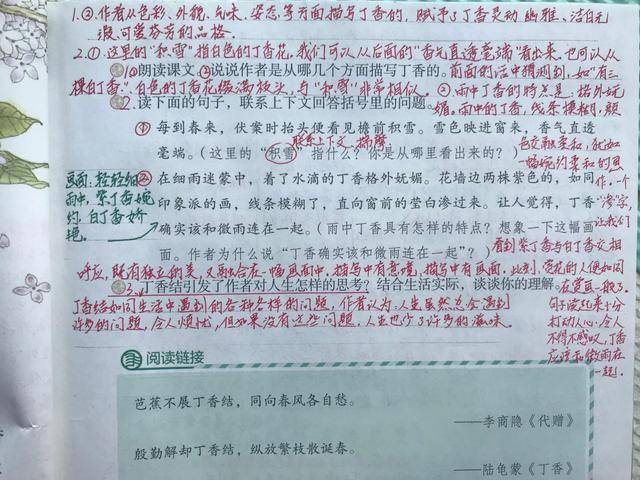 1.②.作者从色彩、外貌、气味、姿态等方面描写丁香的,赋予了丁香灵动 幽雅、洁白无
瑕可爱芬芳的品格.
2.①.这里的"积雪"指白色的丁香花,我们可以从后面的"香气直透毫端"看出来.也可以从
①朗读课文。②说说作者是从哪几个方面描写丁香的。前面的话中猜测到,如"有三
棵白丁香".白色的丁香花缀满枝头,与"积雪"非常相似。②雨中丁香的特点是:格外妩
2.读下面的句子,联系上下文回答括号里的问题。媚。雨中的丁香,线条模糊,颜
①每到春来,伏案时抬头便看见檐前积雪。雪色映进窗来,香气直透
联系上下文
毫端。(这里的"积雪"指什么?你是从哪里看出来的?)
色花融柔和,犹如
一幅婉约柔和的思
画面:轻轻细
雨中,紫丁香婉
约.白丁香娇
艳。
②在细雨迷蒙中,着了水滴的丁香格外妩媚。花墙边两株紫色的,如同
作.一个
印象派的画,线条模糊了,直向窗前的莹白渗过来。让人觉得,丁香
"渗"字,
确实该和微雨连在一起。(雨中丁香具有怎样的特点?想象一下这幅画
让我们
面。作者为什么说"丁香确实该和微雨连在一起"?)
看到紫丁香与白丁香互相
呼应,既有独立的美,又融合在一幅画面中,描写中有意境,描写中有画面,此刻,赏花的人便如同
3.丁香结引发了作者对人生怎样的思考?结合生活实际,谈谈你的理解。
在赏画一般了.
丁香结如同生活中遇到的各种各样的问题,作者认为:人生虽然总会遇到
句子读起来十分
许多的问题,令人烦忧,但如果没有这些问题,人生也少了许多的滋味。
打动人心.令人
不得不感叹,丁香
应该和微雨在
一起.
阅读链接
芭蕉不展丁香结,同向春风各自愁。
——李商隐《代赠》
殷勤解却丁香结,纵放繁枝散诞春。
——陆龟蒙《丁香》